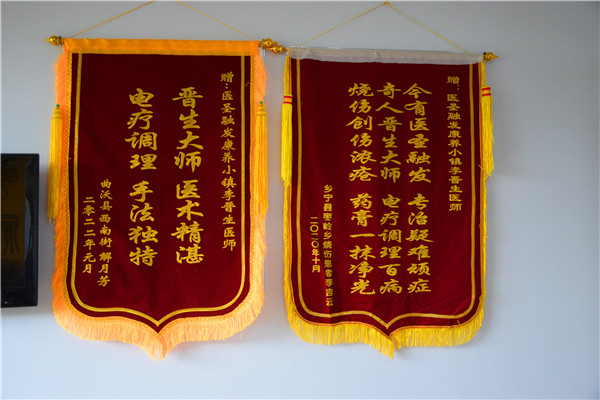 赠：医圣融发康养小镇李晋生医师
晋生大师 医术精湛
电疗调理 手法独特
曲沃县西南街 解月芳
二零二二年元月
赠：医圣融发康养小镇李晋生医师
今有医圣融发 专治疑难顽症
奇人晋生大师 电疗调理百病
烧伤创伤浓疮 药膏一抹净光
乡宁县枣岭乡烧伤患者李吉云
二〇二〇年十月